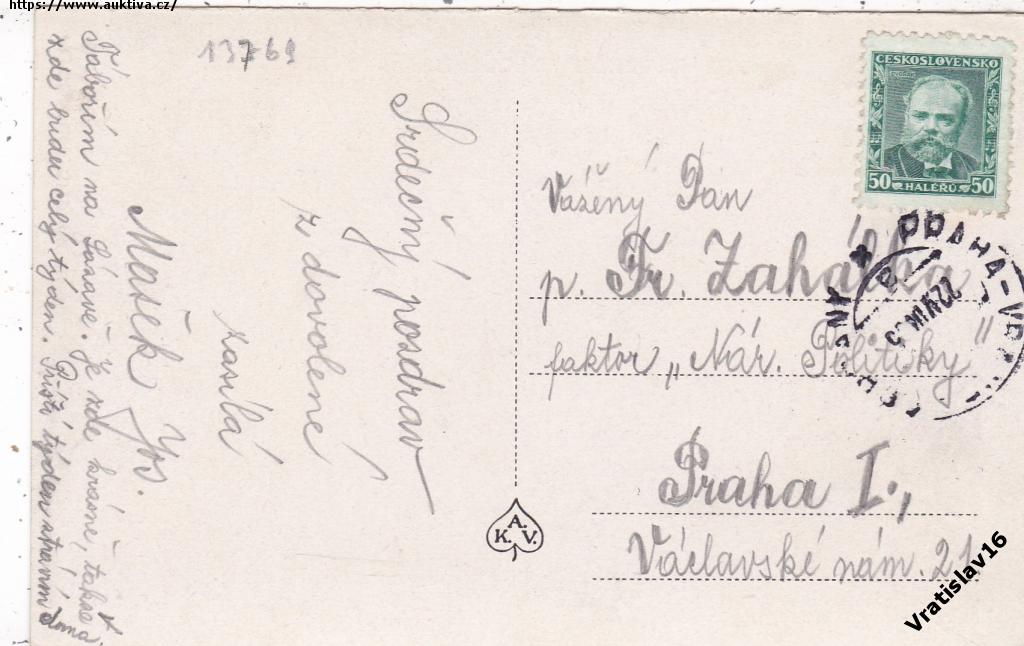 https://www.auktiva.cz/
13769
Srdečný pozdrav
z dovolené
zasílá
Mašek Jos.
Tábořím na Sázavě. Je zde krásně, takže
zde budu celý týden. Příští týden strávím doma.
ČESKOSLOVENSKO
50 HALÉŘŮ 50
PRAHA
Vážený Pán
p. Fr. Zahálka
faktor „Nár. Politiky"
Praha I.,
Václavské nám. 21
K. A. V.
Vratislav16